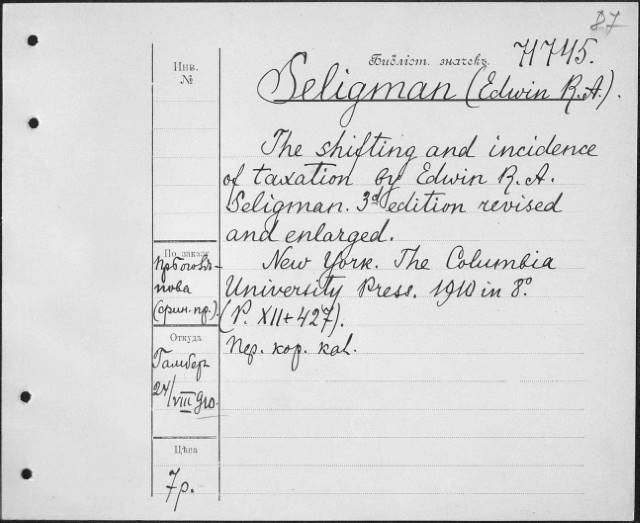 87
Библіот. значекъ. 71745.
Инв.
№
Seligman (Edwin R.A.).
The shifting and incidence
of taxation by Edwin R. A.
Seligman. 3d edition revised
and enlarged.
По заказу
пр Боголѣ-
пова
(фин. пр.).
New York. The Columbia
University Press. 1910 in 8°.
(P. XII+427).
Пер. кор. кол.
Откуда
Гамберъ
24/VIII 910.
Цѣна
7р.